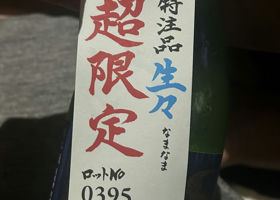 特注品
生々
なまなま
超限定
ロットNo
0395